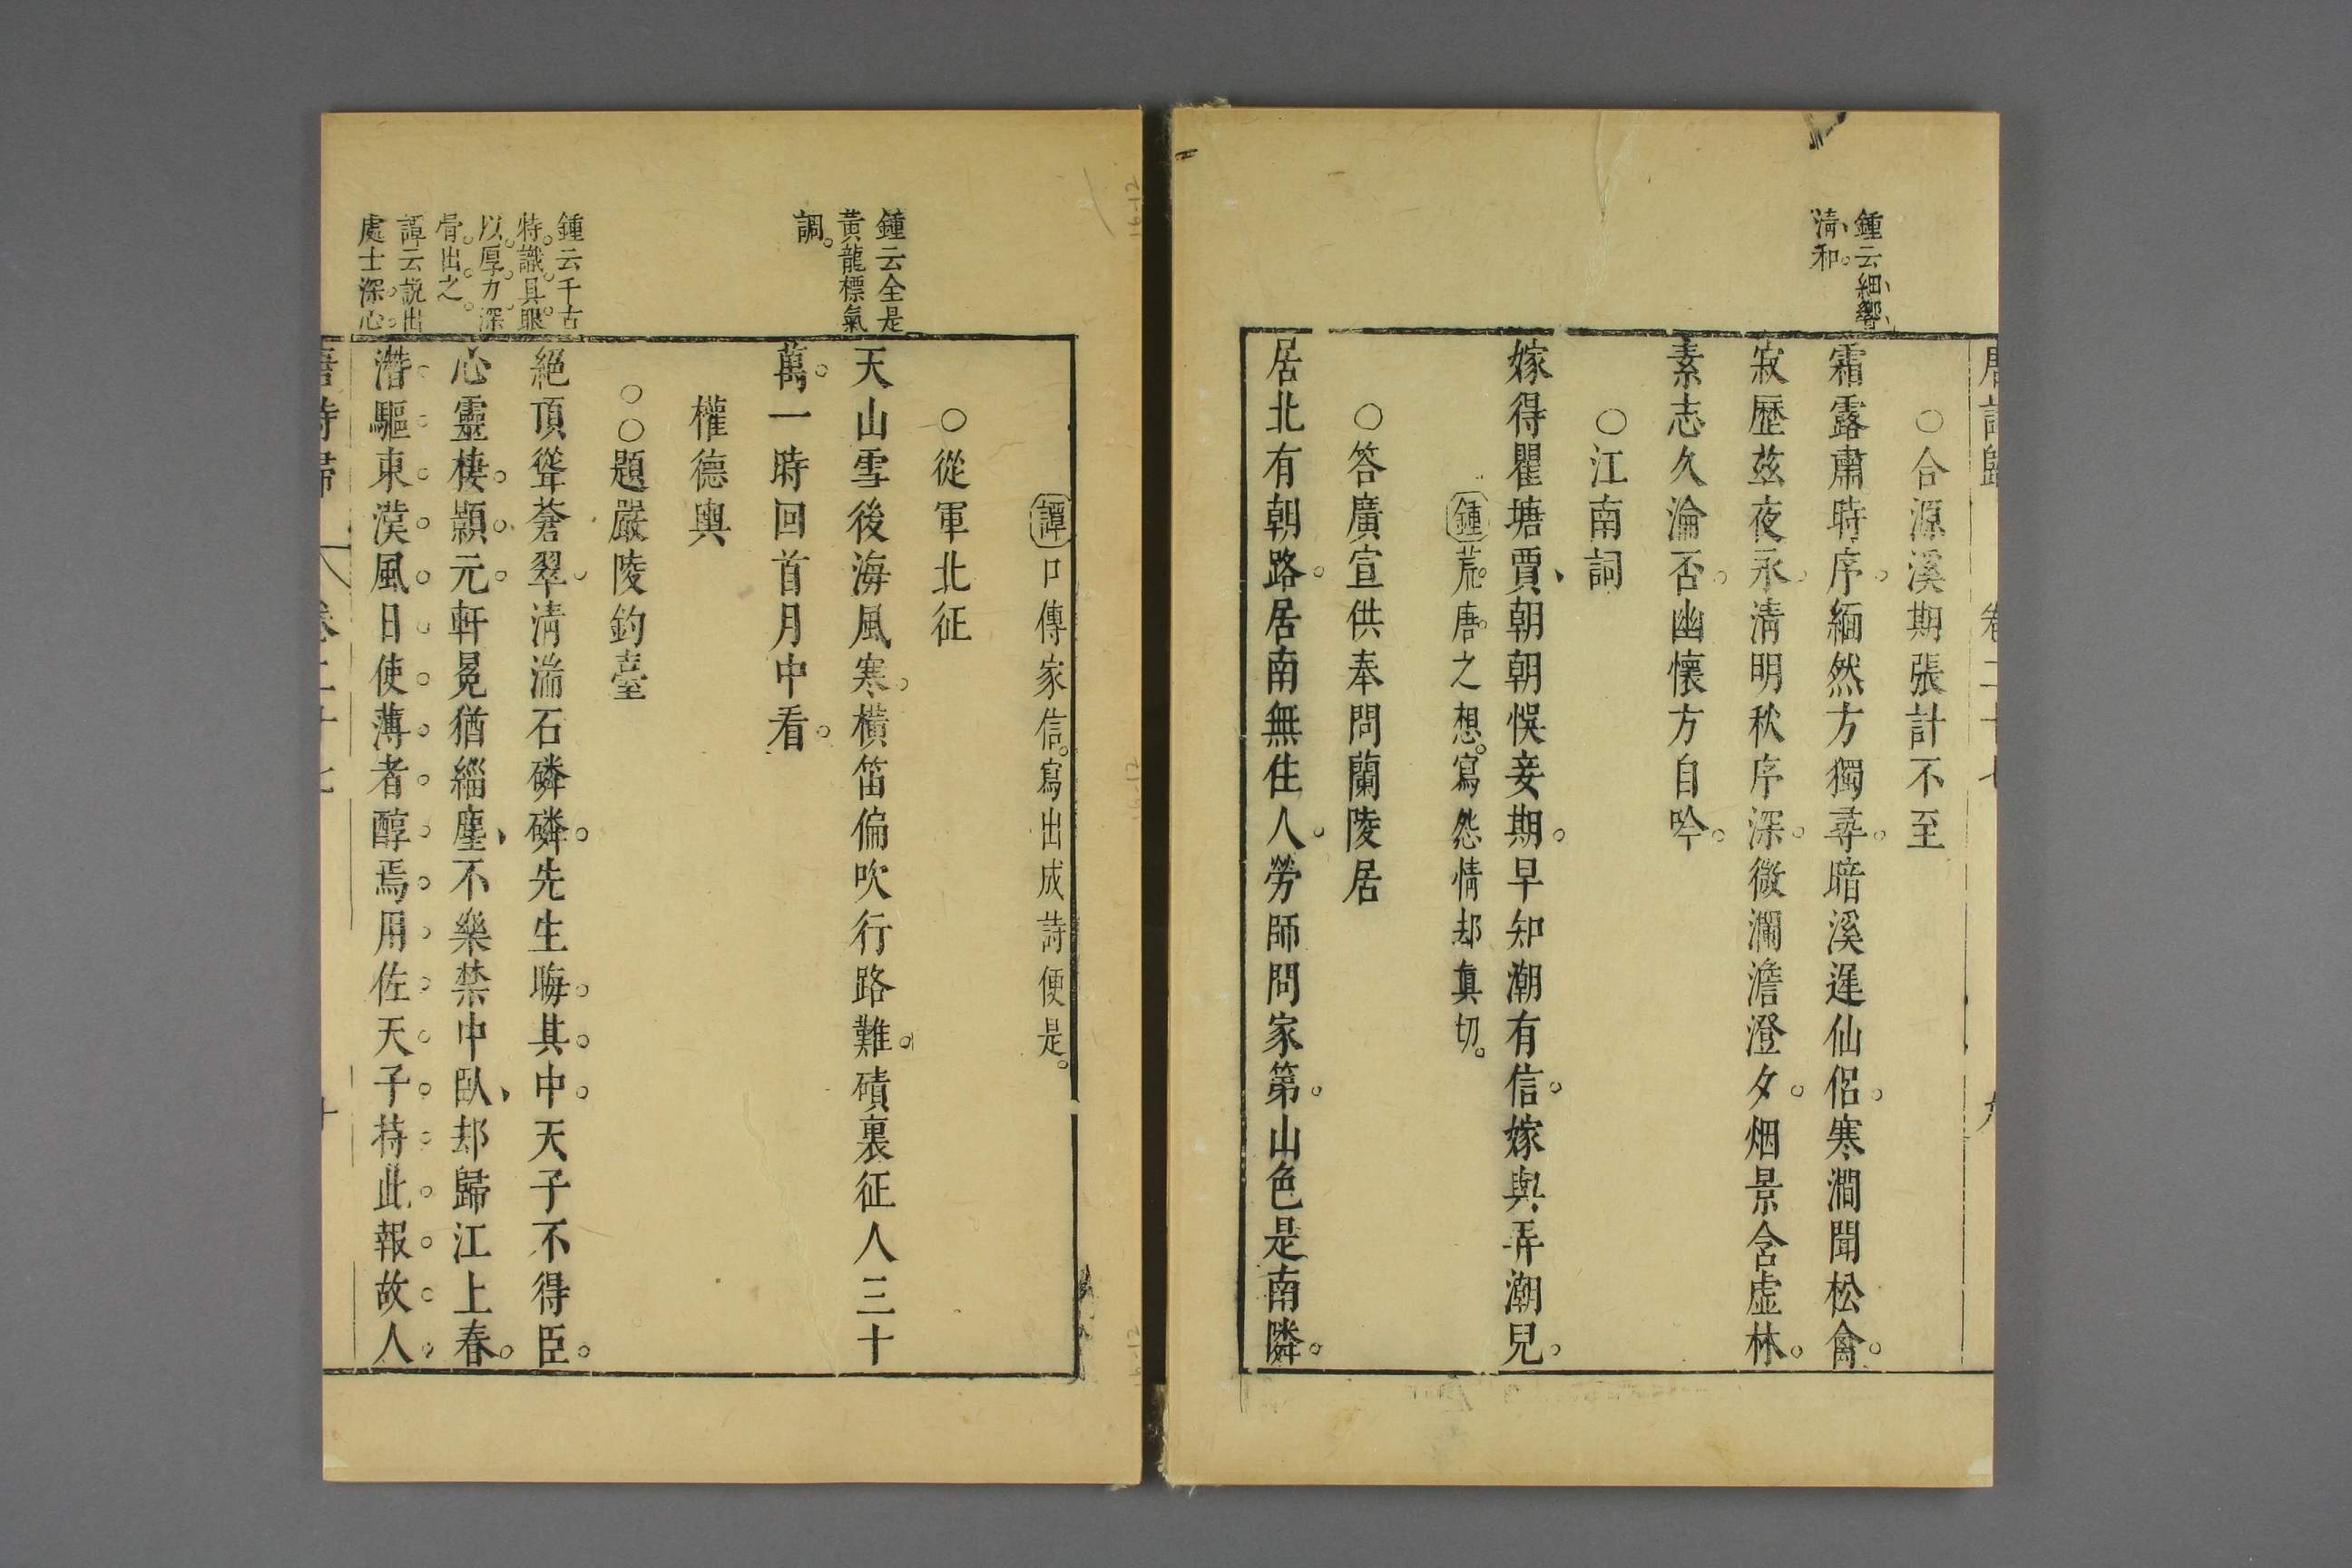 唐詩歸 卷二十七 九
鍾云細響
清和
○合源溪期張計不至
霜露肅時序緬然方獨尋暗溪遲仙侶寒澗聞松禽
寂歷茲夜永清明秋序深微瀾澹澄夕烟景含虛林
素志久淪否幽懷方自吟
○江南詞
嫁得瞿塘賈朝朝悞妾期早知潮有信嫁與弄潮兒
鍾荒唐之想寫怨情却真切
○答廣宣供奉問蘭陵居
居北有朝路居南無住人勞師問家第山色是南隣
譚口傳家信寫出成詩便是
○從軍北征
鍾云全是
黃龍標氣
調
天山雪後海風寒橫笛偏吹行路難磧裏征人三十
萬一時回首月中看
權德輿
○○題嚴陵釣臺
鍾云千古
特識具眼
以厚力深
骨出之
譚云說出
處士深心
絕頂聳蒼翠清湍石磷磷先生晦其中天子不得臣
心靈棲顥元軒冕猶緇塵不樂禁中臥却歸江上春
潛驅東漢風日使薄者醇焉用佐天子持此報故人
唐詩歸 卷二十七 十